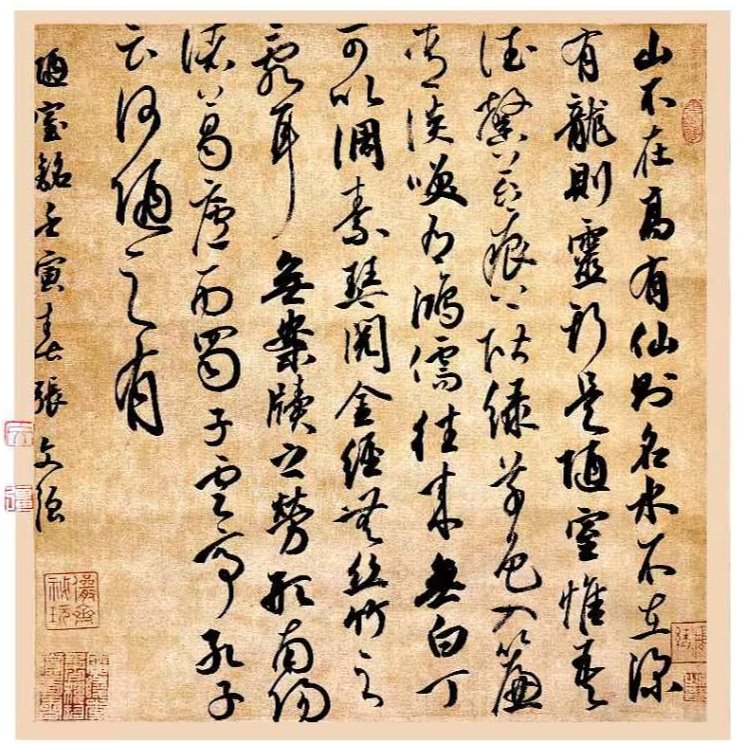 山不在高有仙則名水不在深
有龍則靈斯是陋室惟吾
德馨苔痕上階綠草色入簾
青談咲有鴻儒往來無白丁
可以調素琴閱金經無絲竹之
亂耳無案牘之勞形南陽
諸葛廬西蜀子雲亭孔子
云何陋之有
陋室銘壬寅春張文強
儼齋秘玩